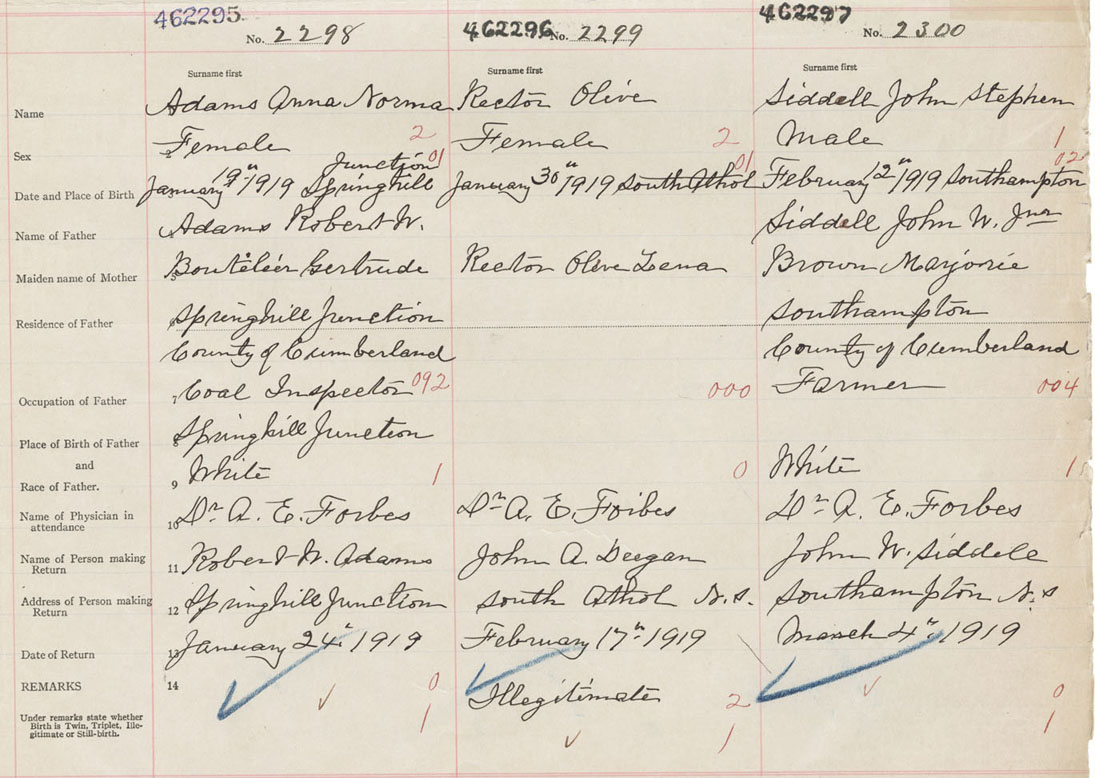 462295 462296 462297
No. 2298 No. 2299 No. 2300
Surname first Surname first Surname first
Name Adams Anna Norma Rector Olive Siddell John Stephen
Sex 2 Female 2 Female 2 Male 1
Junction 01 01 02
Date and Place of Birth January 19th 1919 Springhill January 30th 1919 South Athol February 12th 1919 Southampton
Name of Father Adams Robert W. Siddell John W. Jnr
Maiden name of Mother 5 Boutelier Gertrude Rector Olive Lena Brown Marjorie
Residence of Father 6 Springhill Junction Southampton
County of Cumberland County of Cumberland
Occupation of Father 7 Coal Inspector 092 000 Farmer 004
Place of Birth of Father 8 Springhill Junction
and
Race of Father. 9 White 1 0 White 1
Name of Physician in
attendance 10 Dr A. E. Forbes Dr A. E. Forbes Dr A. E. Forbes
Name of Person making
Return 11 Robert W. Adams John A. Deegan John W. Siddell
Address of Person making
Return 12 Springhill Junction South Athol N.S. Southampton N.S
Date of Return 13 January 24th 1919 February 17th 1919 March 4th 1919
REMARKS 14 0 Illegitimate 2 0
Under remarks state whether
Birth is Twin, Triplet, Ille-
gitimate or Still-birth. 1 1 1